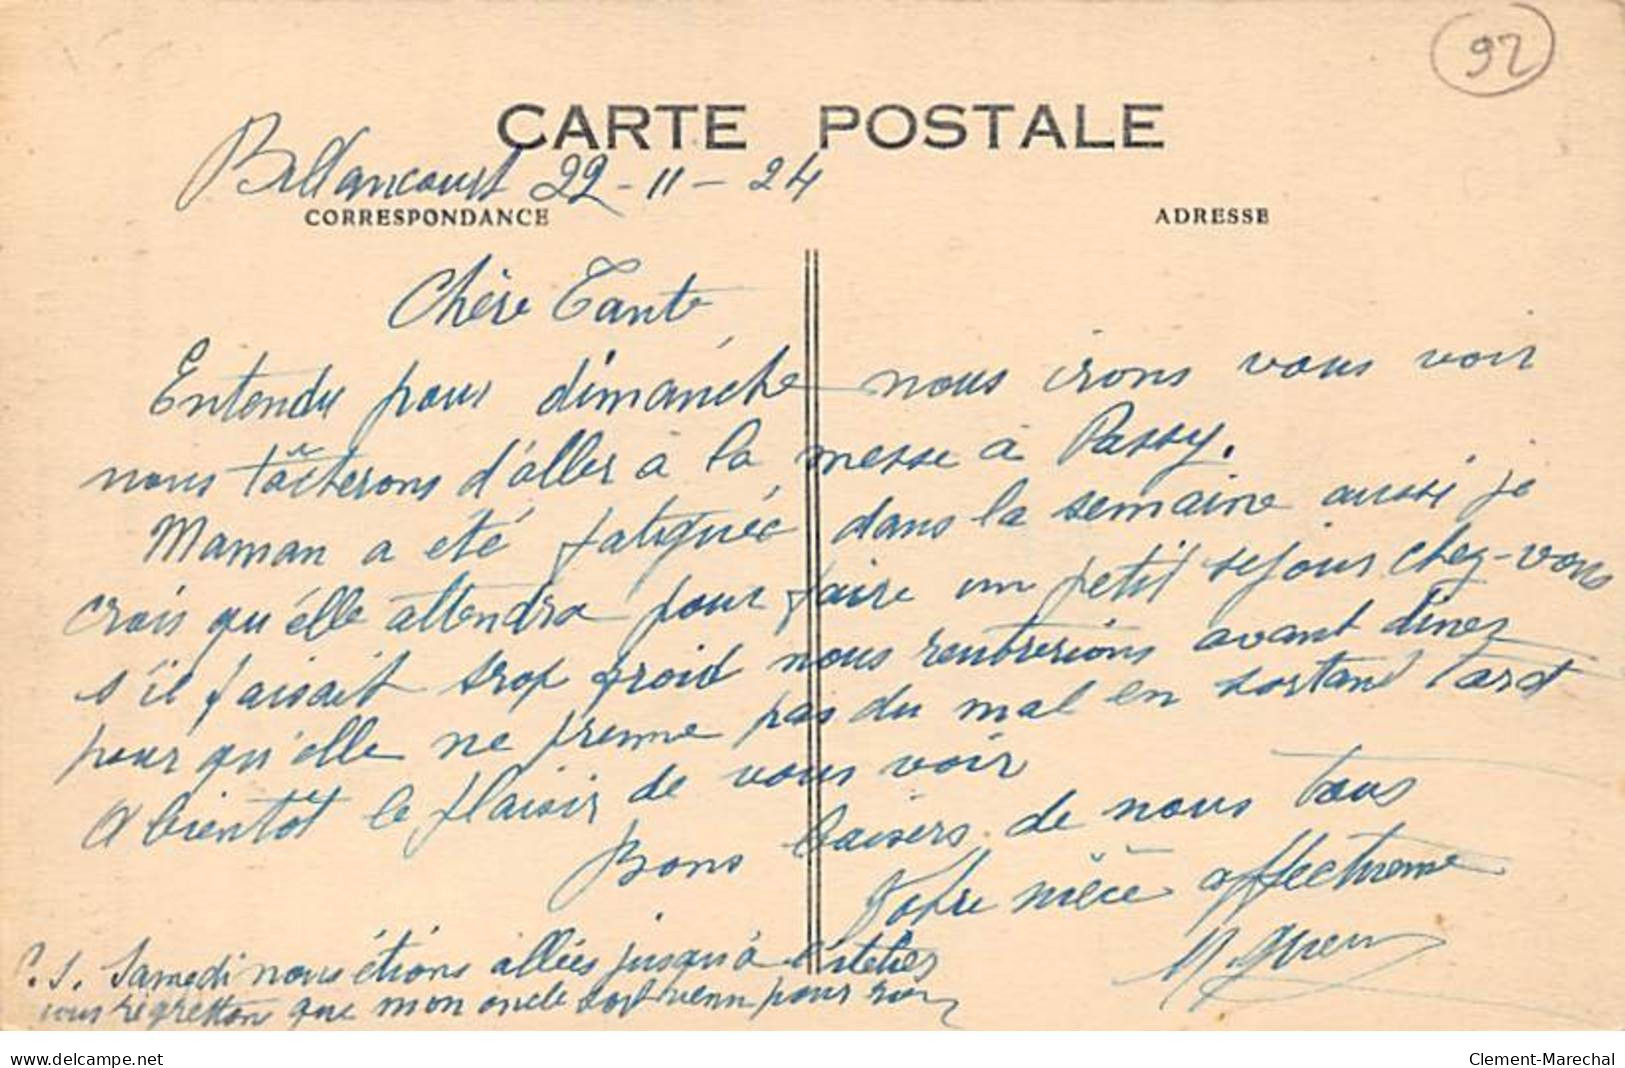 92
CARTE POSTALE
Billancourt 22-11-24
CORRESPONDANCE
ADRESSE
Chère Tante
Entendu pour dimanche nous irons vous voir
nous tâcherons d'aller à la messe à Passy.
Maman a été fatiguée dans la semaine aussi je
crois qu'elle attendra pour faire un petit séjour chez-vous
s'il faisait trop froid nous rentrerions avant dinez
pour qu'elle ne prenne pas du mal en sortant tard
A bientôt le plaisir de vous voir
Bons baisers de nous tous
Votre nièce affectionnée
P.S. Samedi nous étions allées jusqu'à l'atelier
nous regrettons que mon oncle soit venu pour rien
www.delcampe.net
Clement-Marechal